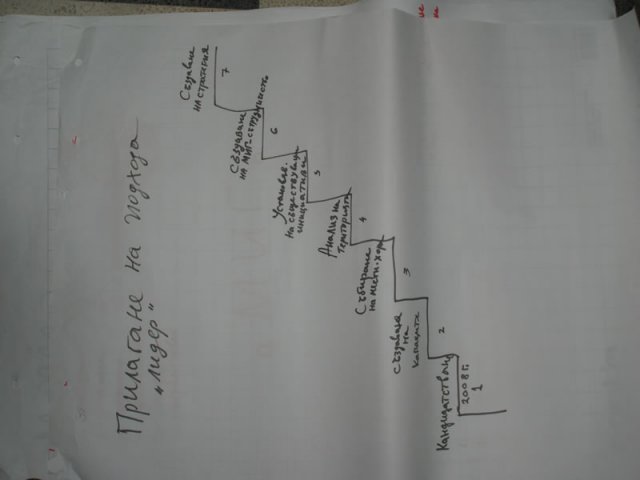 Прилагане на подхода
„лидер“
Създаване
на стратегия
7
Създаване
на МИГ-
6
Установяв.
на
инициативи
5
Анализ на
територията
4
Събиране
на местн. хора
3
Създаване
на
2
2008 г.
1